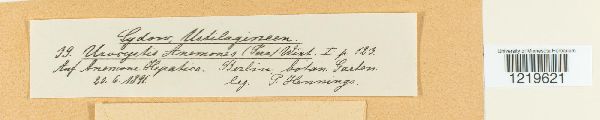 Sydow, Ustilagineen.
39. Urocystis Anemones (Pers) Wint. I p. 123.
Auf Anemone Hepatica. Berlin botan. Garten.
22. 6. 1891. leg. P. Hennings.
University of Minnesota Herbarium
1219621